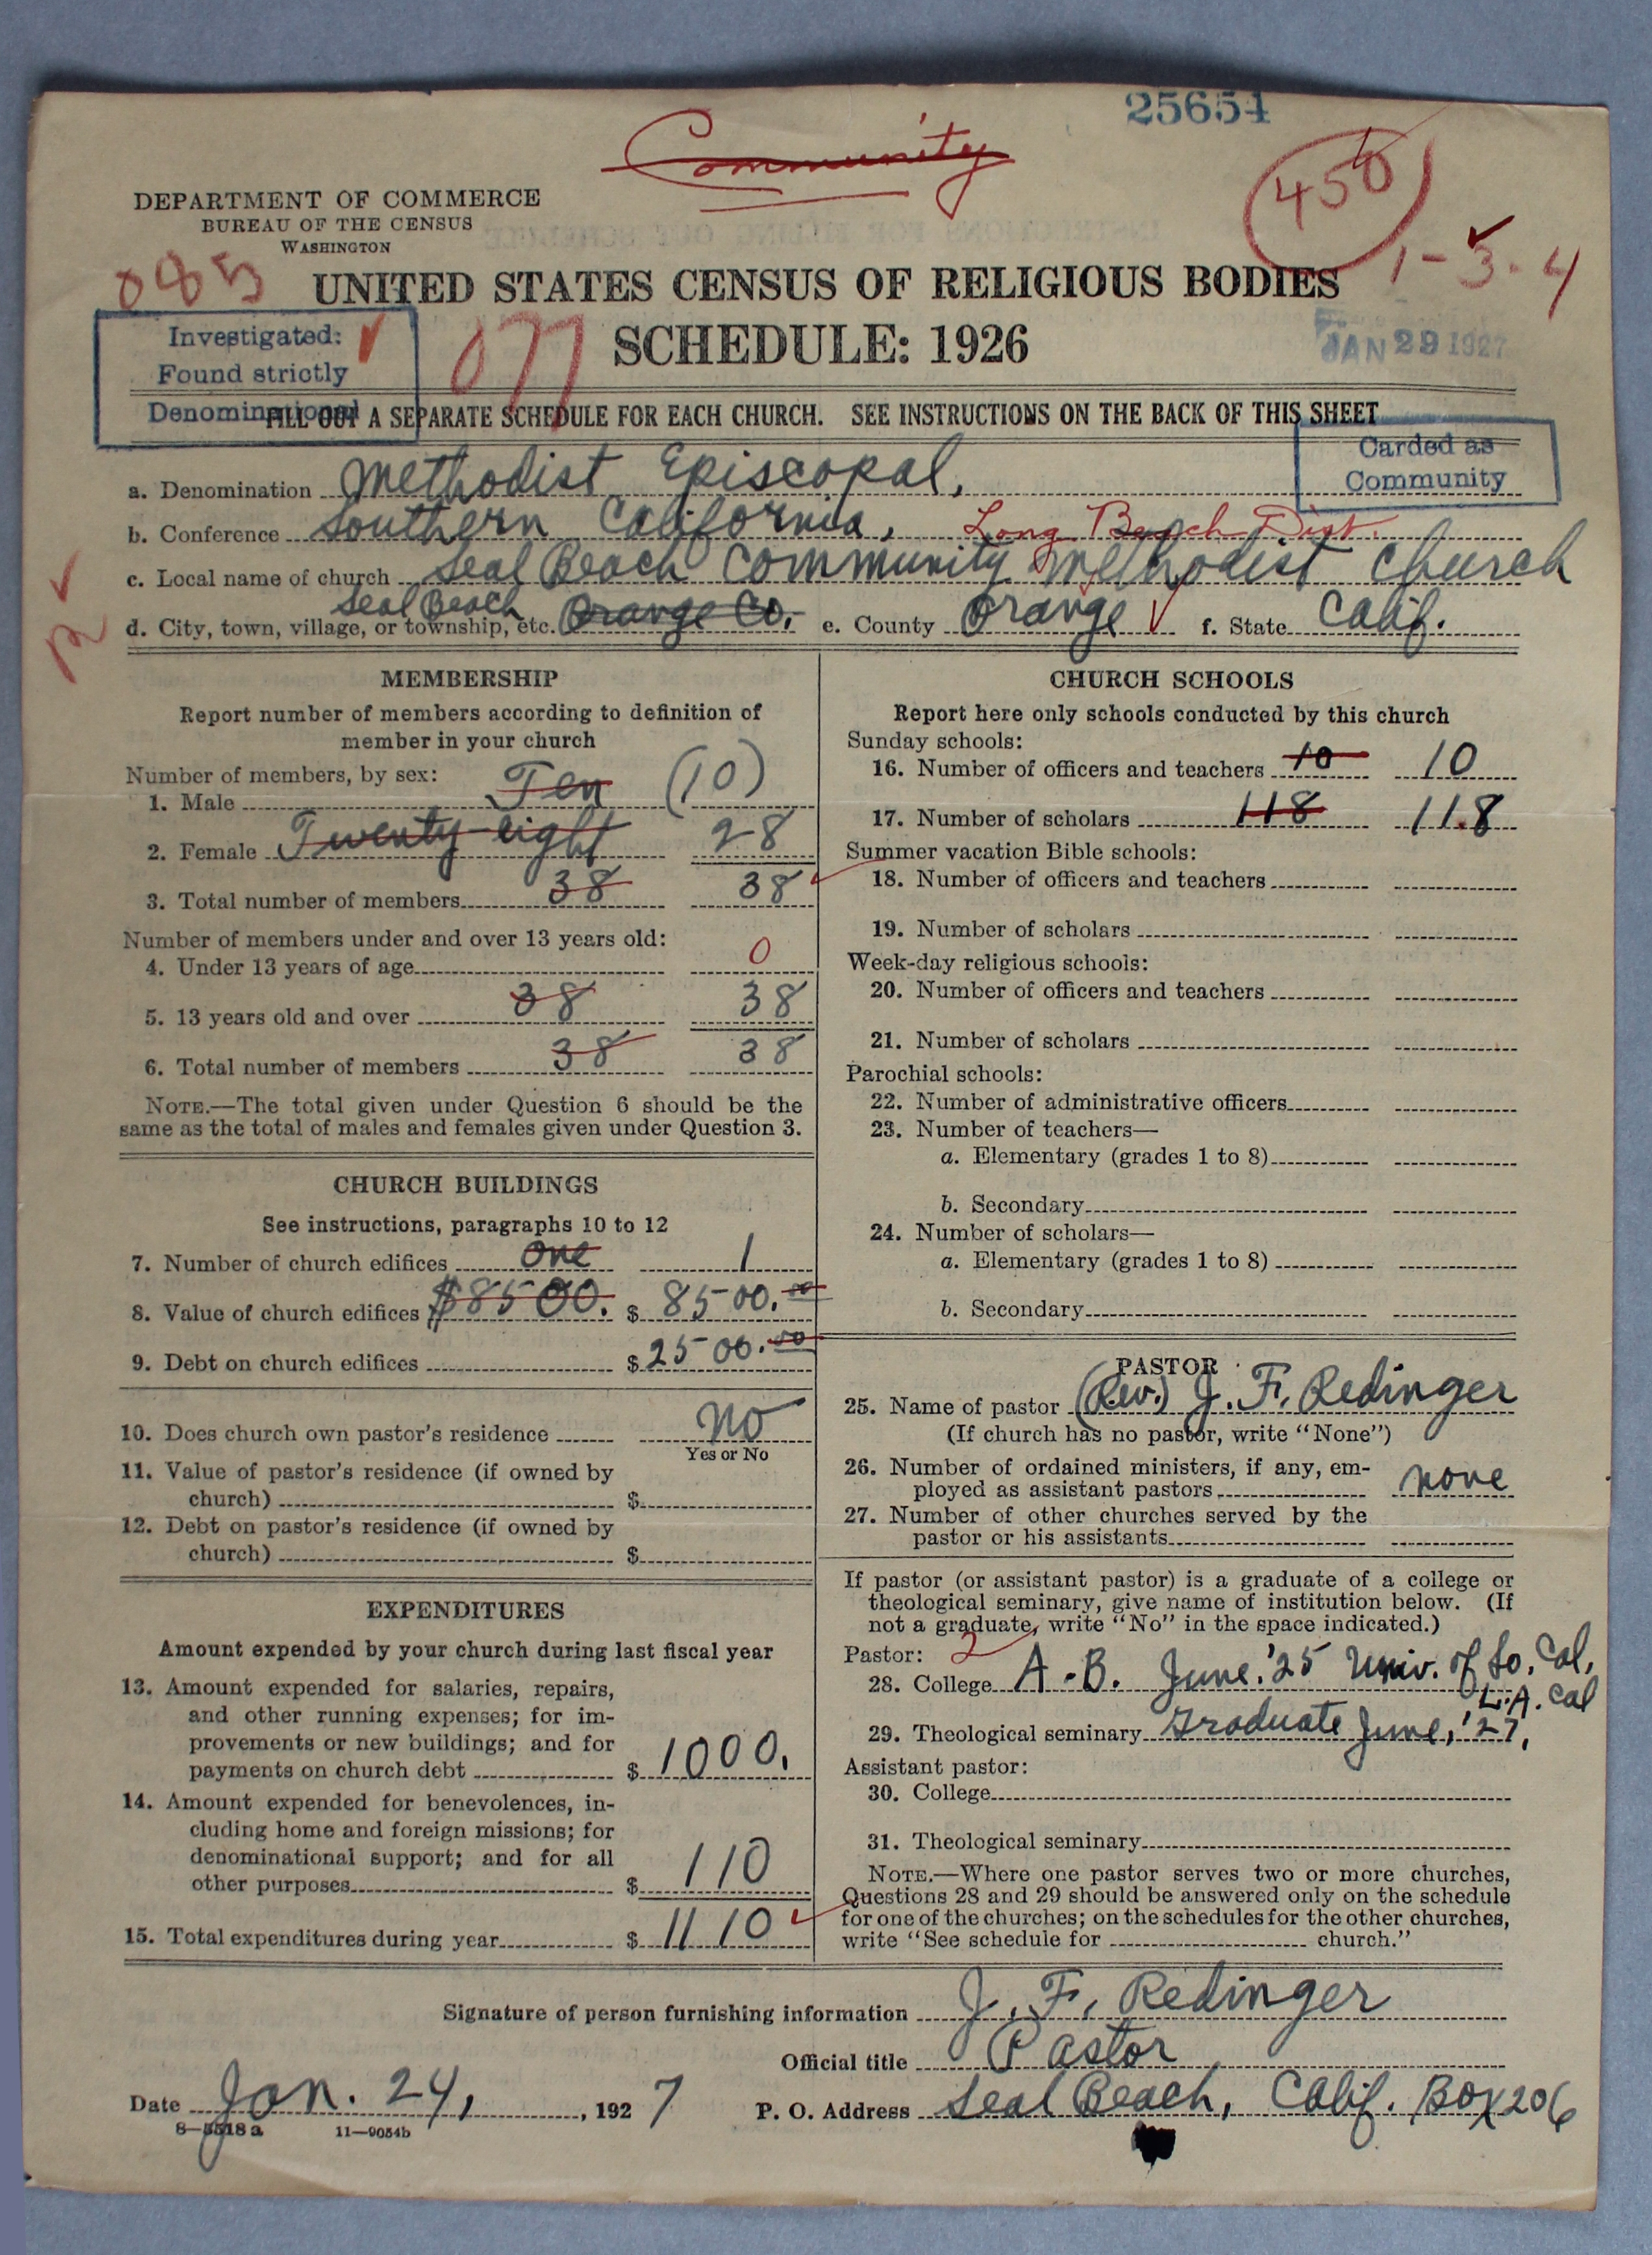 25654
Community
450
DEPARTMENT OF COMMERCE
BUREAU OF THE CENSUS
WASHINGTON
085
1-3-4
UNITED STATES CENSUS OF RELIGIOUS BODIES
SCHEDULE: 1926
077
JAN 29 1927
Investigated:
Found strictly
Denominational
FILL OUT A SEPARATE SCHEDULE FOR EACH CHURCH. SEE INSTRUCTIONS ON THE BACK OF THIS SHEET
Carded as
Community
a. Denomination Methodist Episcopal,
b. Conference Southern California, Long Beach Dist.
c. Local name of church Seal Beach Community Methodist Church
d. City, town, village, or township, etc. Seal Beach Orange Co. e. County Orange f. State Calif.
MEMBERSHIP
Report number of members according to definition of
member in your church
Number of members, by sex:
1. Male Ten (10)
2. Female Twenty-eight 28
3. Total number of members 38 38
Number of members under and over 13 years old:
4. Under 13 years of age 0
5. 13 years old and over 38 38
6. Total number of members 38 38
NOTE.—The total given under Question 6 should be the
same as the total of males and females given under Question 3.
CHURCH BUILDINGS
See instructions, paragraphs 10 to 12
7. Number of church edifices One 1
8. Value of church edifices $8500. $ 8500.00
9. Debt on church edifices $ 2500.00
10. Does church own pastor's residence No
Yes or No
11. Value of pastor's residence (if owned by
church) $
12. Debt on pastor's residence (if owned by
church) $
EXPENDITURES
Amount expended by your church during last fiscal year
13. Amount expended for salaries, repairs,
and other running expenses; for im-
provements or new buildings; and for
payments on church debt $ 1000.
14. Amount expended for benevolences, in-
cluding home and foreign missions; for
denominational support; and for all
other purposes $ 110
15. Total expenditures during year $ 1110
CHURCH SCHOOLS
Report here only schools conducted by this church
Sunday schools:
16. Number of officers and teachers 10 10
17. Number of scholars 118 118
Summer vacation Bible schools:
18. Number of officers and teachers
19. Number of scholars
Week-day religious schools:
20. Number of officers and teachers
21. Number of scholars
Parochial schools:
22. Number of administrative officers
23. Number of teachers—
a. Elementary (grades 1 to 8)
b. Secondary
24. Number of scholars—
a. Elementary (grades 1 to 8)
b. Secondary
PASTOR
25. Name of pastor (Rev.) J. F. Redinger
(If church has no pastor, write "None")
26. Number of ordained ministers, if any, em-
ployed as assistant pastors none
27. Number of other churches served by the
pastor or his assistants
If pastor (or assistant pastor) is a graduate of a college or
theological seminary, give name of institution below. (If
not a graduate, write "No" in the space indicated.)
Pastor: 2
28. College A.B. June '25 Univ. of So. Cal,
L.A. Cal
29. Theological seminary Graduate June, '27,
Assistant pastor:
30. College
31. Theological seminary
NOTE.—Where one pastor serves two or more churches,
Questions 28 and 29 should be answered only on the schedule
for one of the churches; on the schedules for the other churches,
write "See schedule for church."
Signature of person furnishing information J. F. Redinger
Official title Pastor
Date Jan. 24, , 1927 P. O. Address Seal Beach, Calif. Box 206
8—5518a 11—9054b